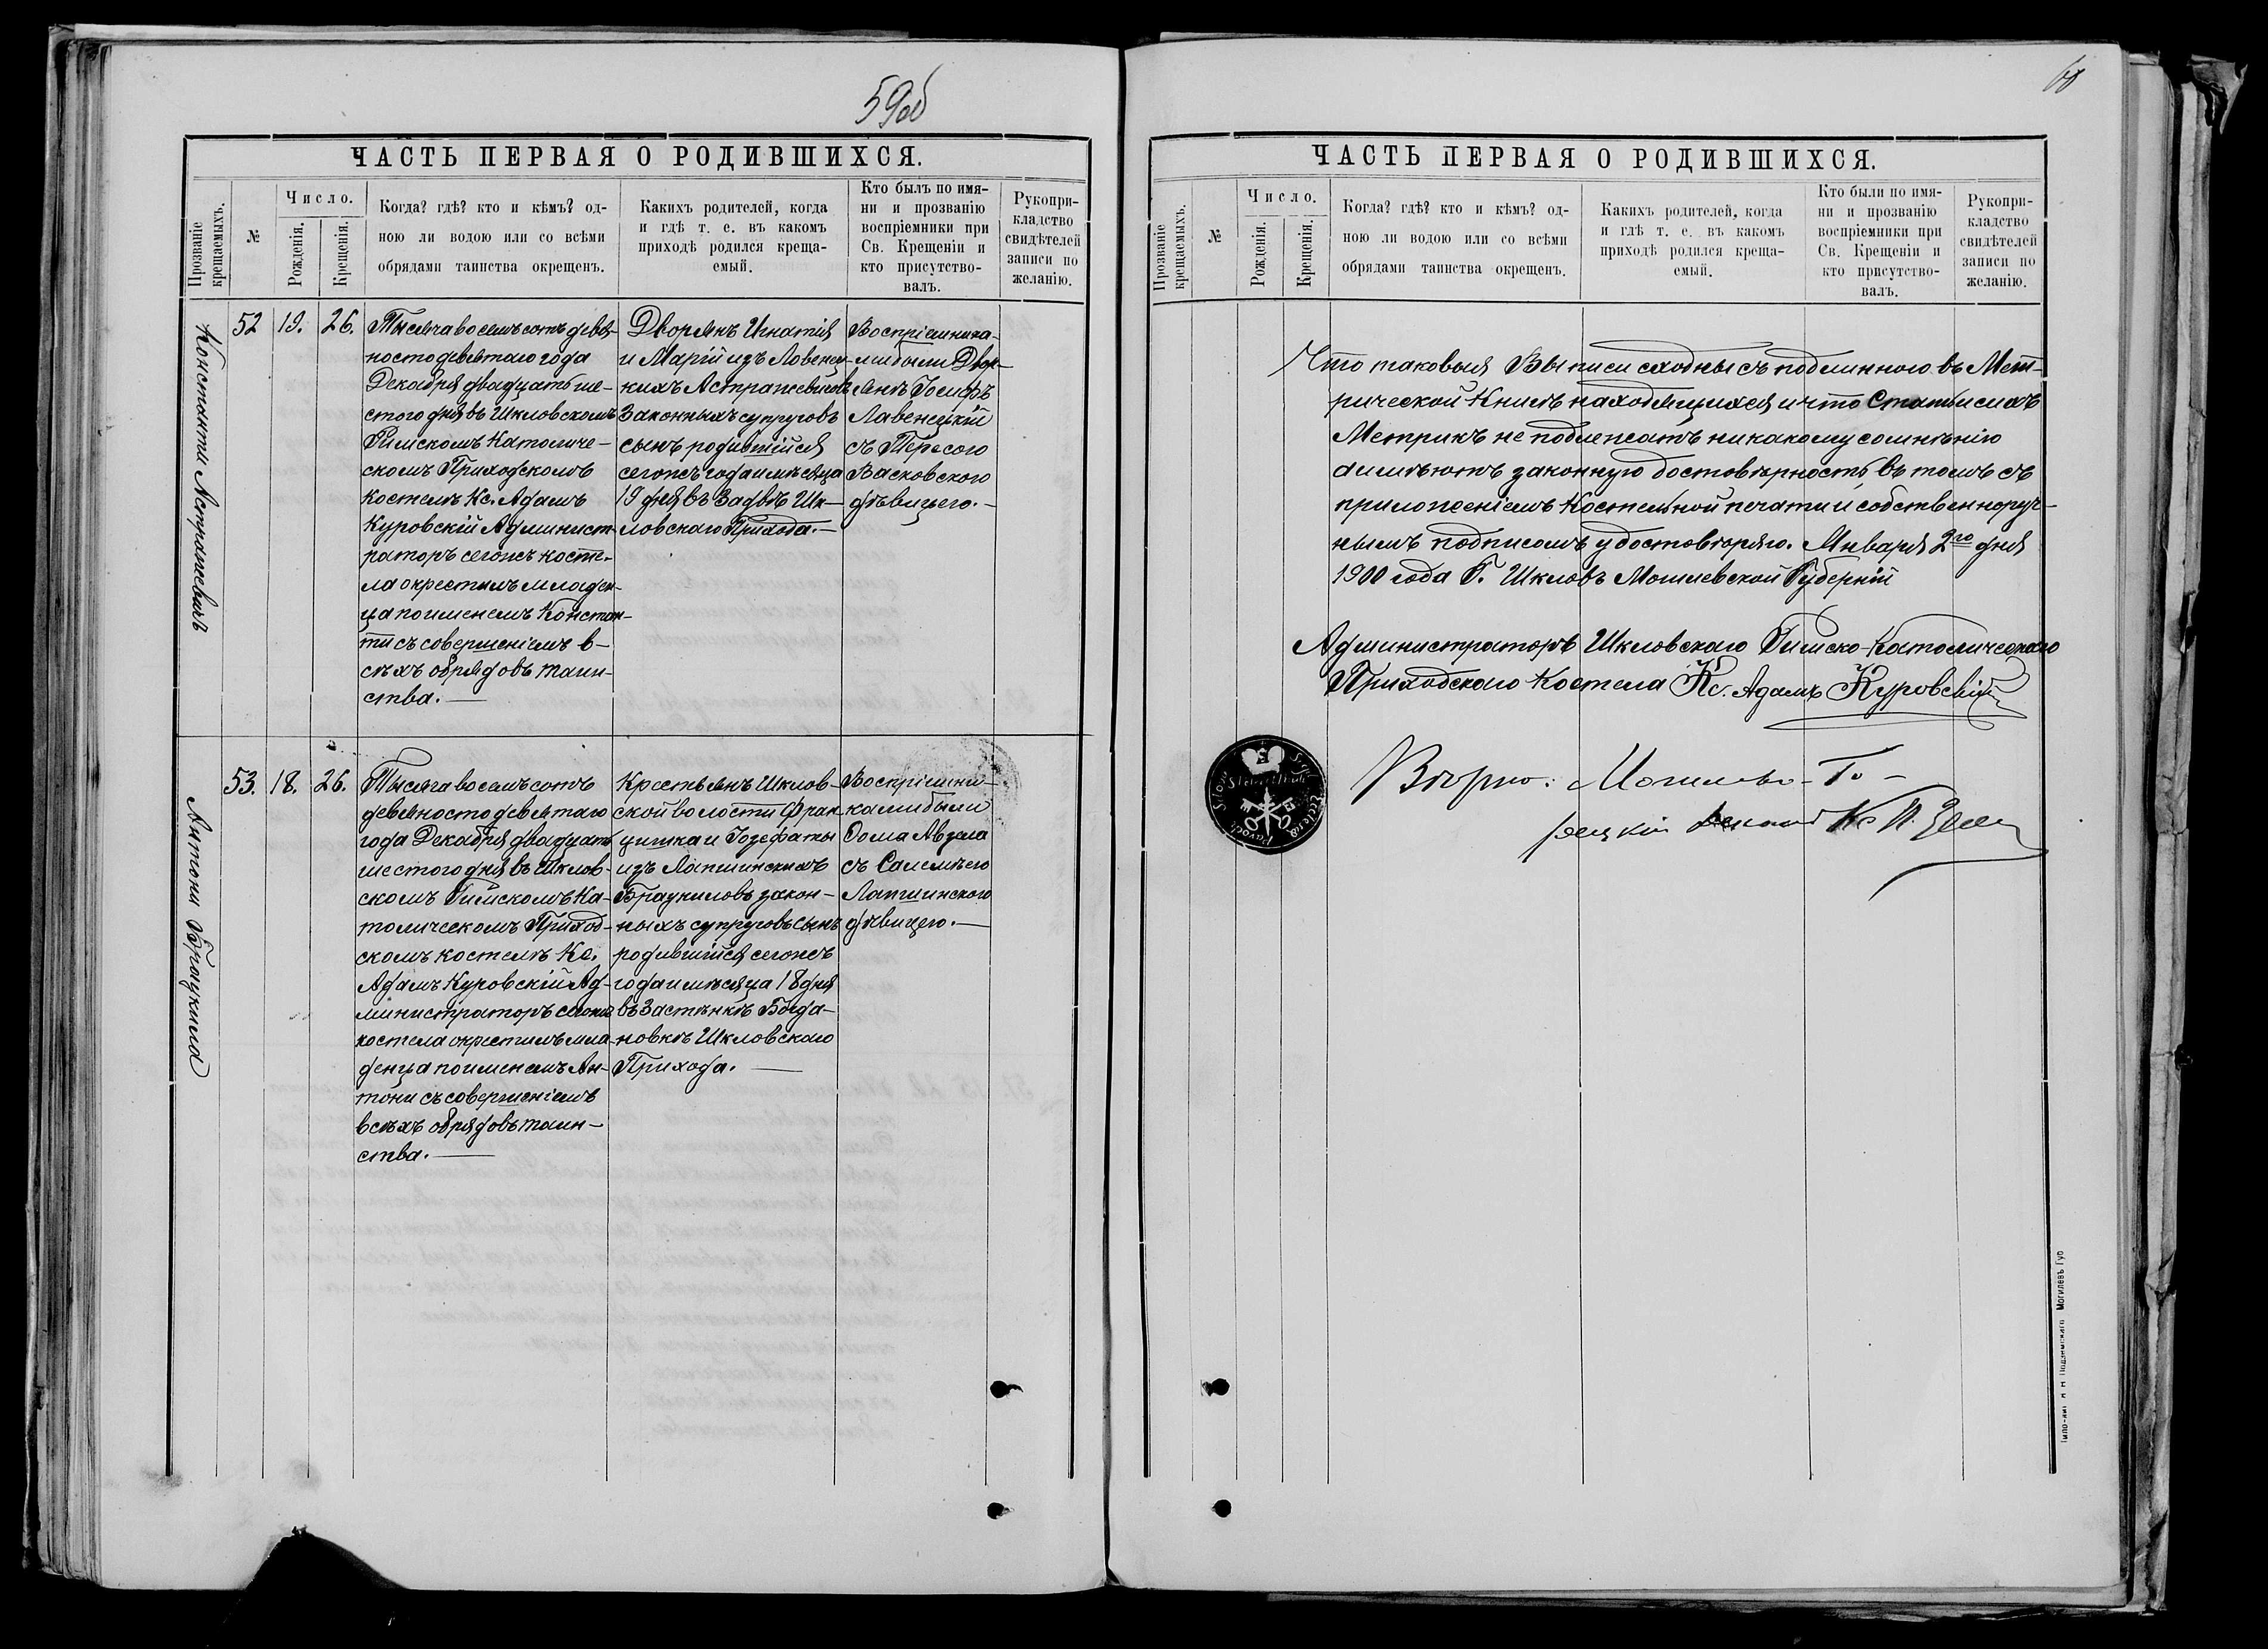 59об
ЧАСТЬ ПЕРВАЯ О РОДИВШИХСЯ.
Прозваніе крещаемыхъ.
№
Число.
Рожденія.
Крещенія.
Когда? гдѣ? кто и кѣмъ? од-
ною ли водою или со всѣми
обрядами таинства окрещенъ.
Какихъ родителей, когда
и гдѣ т. е. въ какомъ
приходѣ родился креща-
емый.
Кто былъ по имя-
ни и прозванію
воспріемники при
Св. Крещеніи и
кто присутство-
валъ.
Рукопри-
кладство
свидѣтелей
записи по
желанію.
Константи Астрашевичъ
52
19.
26.
Тысяча восемъсотъ девя-
ностодевятаго года
Декабря двадцать ше-
стого дня въ Шкловскомъ
Римскомъ Католиче-
скомъ Приходскомъ
костелѣ Кс. Адамъ
Куровскій Админист-
раторъ сегожъ косте-
ла окрестилъ младен-
ца по именемъ Констан-
ти съ совершеніемъ в-
сѣхъ обрядовъ таин-
ства.—
Дворянъ Игнатія
и Маріи изъ Ловенец-
кихъ Астрашевичовъ
Законныхъ супруговъ
сынъ родившійся
сегожъ года и мѣсяца
19 дня въ Задвѣ Шк-
ловскаго Прихода.—
Воспріемника-
ми были Двор-
янъ Іосифъ
Лавенецкій
съ Тересою
Васковского
дѣвицего.—
Антони Брацкило
53.
18.
26.
Тысяча восемъсотъ
девяностодевятаго
года Декабря двадцать
шестого дня въ Шклов-
скомъ Римскомъ Ка-
толическомъ Приход-
скомъ костелѣ Кс.
Адамъ Куровскій Ад-
министраторъ сегожъ
костела окрестилъ мла-
денца по именемъ Ан-
тони съ совершеніемъ
всѣхъ обрядовъ таин-
ства.—
Крестьянъ Шклов-
ской волости Фран-
цишка и Іозефаты
изъ Лапшинскихъ
Брацкиловъ закон-
ныхъ супруговъ сынъ
родившійся сегожъ
года и мѣсяца 18 дня
въ Застѣнкѣ Богда-
новкѣ Шкловскаго
Прихода.—
Воспріемни-
ками были
Ѳома Авзела
съ Саломѣего
Лапшинского
дѣвицего.—
60
ЧАСТЬ ПЕРВАЯ О РОДИВШИХСЯ.
Прозваніе крещаемыхъ.
№
Число.
Рожденія.
Крещенія.
Когда? гдѣ? кто и кѣмъ? од-
ною ли водою или со всѣми
обрядами таинства окрещенъ.
Какихъ родителей, когда
и гдѣ т. е. въ какомъ
приходѣ родился креща-
емый.
Кто были по имя-
ни и прозванію
воспріемники при
Св. Крещеніи и
кто присутство-
валъ.
Рукопри-
кладство
свидѣтелей
записи по
желанію.
Что таковыя Выписи сходны съ подлинного въ Мет-
рической Книгѣ находящихся и что Статьи сихъ
Метрикъ не подлежатъ никакому сомнѣнію
а имѣютъ законную достовѣрность въ томъ съ
приложеніемъ Костельной печати и собственноруч-
нымъ подписомъ удостовѣряю. Января 2го дня
1900 года Г. Шкловъ Могилевской Губерніи
Администраторъ Шкловскаго Римско-Католическаго
Приходского Костела Кс. Адамъ Куровскій
Вѣрно: Могилево-Го-
рецкій Деканъ Кс. П.
Могилевъ Губ